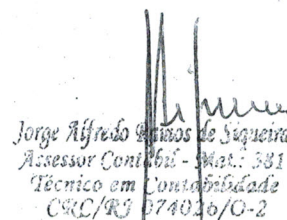 Jorge Alfredo de Siqueira
Assessor Contábil - Mat.: 381
Técnico em Contabilidade
CRC/RJ 074026/O-2